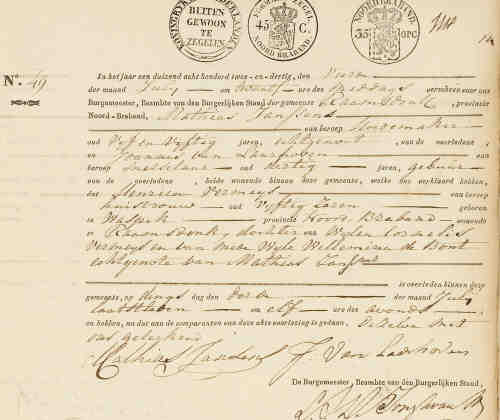 KONINGRYK DER NEDERLANDEN
BUITEN
GEWOON
TE
ZEGELEN
45 C.
NOORD BRABAND
NOORD BRABAND.
35 OPC
N.º 49
In het jaar een duizend acht honderd twee-en-dertig, den Vierde
der maand July om twaalf ure des Middags verscheen voor ons
Burgemeester, Beambte van den Burgerlijken Stand der gemeente Raamsdonk, provincie
Noord-Braband, Mathias Janssens
van beroep
oud Vyf en Vyftig jaren, echtgenoot van de overledene,
en Johannis van Laarhoven van
beroep oud dertig jaren, gebuur
van de overledene, beide wonende binnen deze gemeente, welke ons verklaard hebben,
dat Vermeys van beroep
huisvrouw oud Vyftig Jaren geboren
te Waspik provincie Noord Braband wonende
te Raamsdonk, dochter van Wylen Cornelis
Vermeys en van mede Wyle Willemina de Bont
echtgenote van Mathias Janssens
is overleden binnen deze
gemeente, op dings dag den derde der maand July
laatstleden om elf ure des avonds,
en hebben, na dat aan de comparanten van deze akte voorlezing is gedaan, dezelve met
ons geteekend
Mathias Jansens J. Van Laarhoven
De Burgemeester, Beambte van den Burgerlijken Stand,